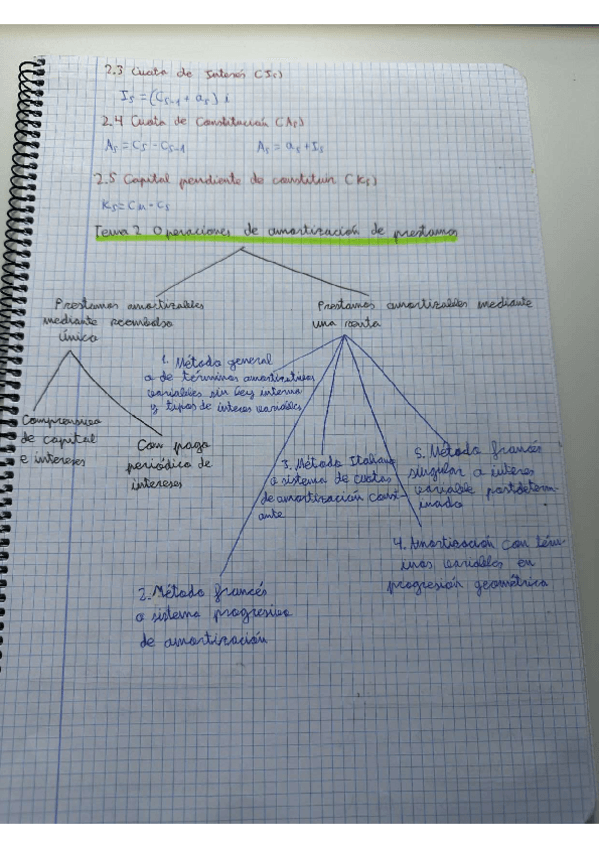 2.3 Cuota de Interés (Is)
Is = (Cs-1 + as) i
2.4 Cuota de Constitución (As)
As = Cs - Cs-1 As = as + Is
2.5 Capital pendiente de constituir (Ks)
Ks = Cn - Cs
Tema 2 Operaciones de amortización de prestamos
Prestamos amortizables
mediante reembolso
único
Prestamos amortizables mediante
una renta
Comprensiva
de capital
e intereses
Con pago
periódico de
intereses
1. Método general
o de términos amortizativos
variables sin ley interna
y tipos de interes variables
2. Método francés
o sistema progresivo
de amortización
3. Método Italiano
o sistema de cuotas
de amortización const-
ante
4. Amortización con tér-
minos variables en
progresión geométrica
5. Método francés
singular a interes
variable postdeterm-
inado